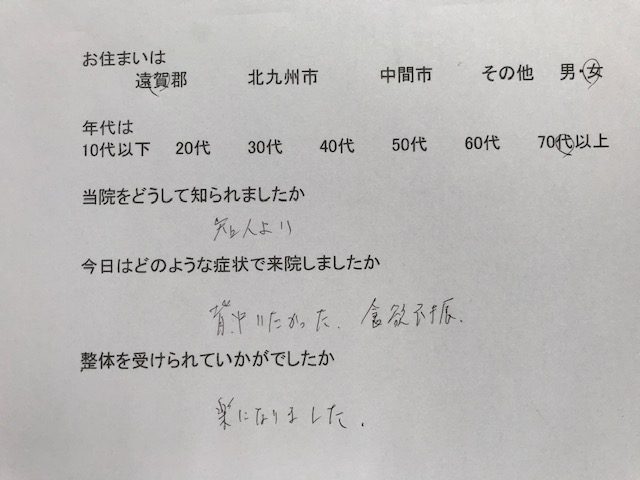 お住まいは
遠賀郡 北九州市 中間市 その他 男・女
年代は
10代以下 20代 30代 40代 50代 60代 70代以上
当院をどうして知られましたか
知人より
今日はどのような症状で来院しましたか
背中いたかった、食欲不振.
整体を受けられていかがでしたか
楽になりました.